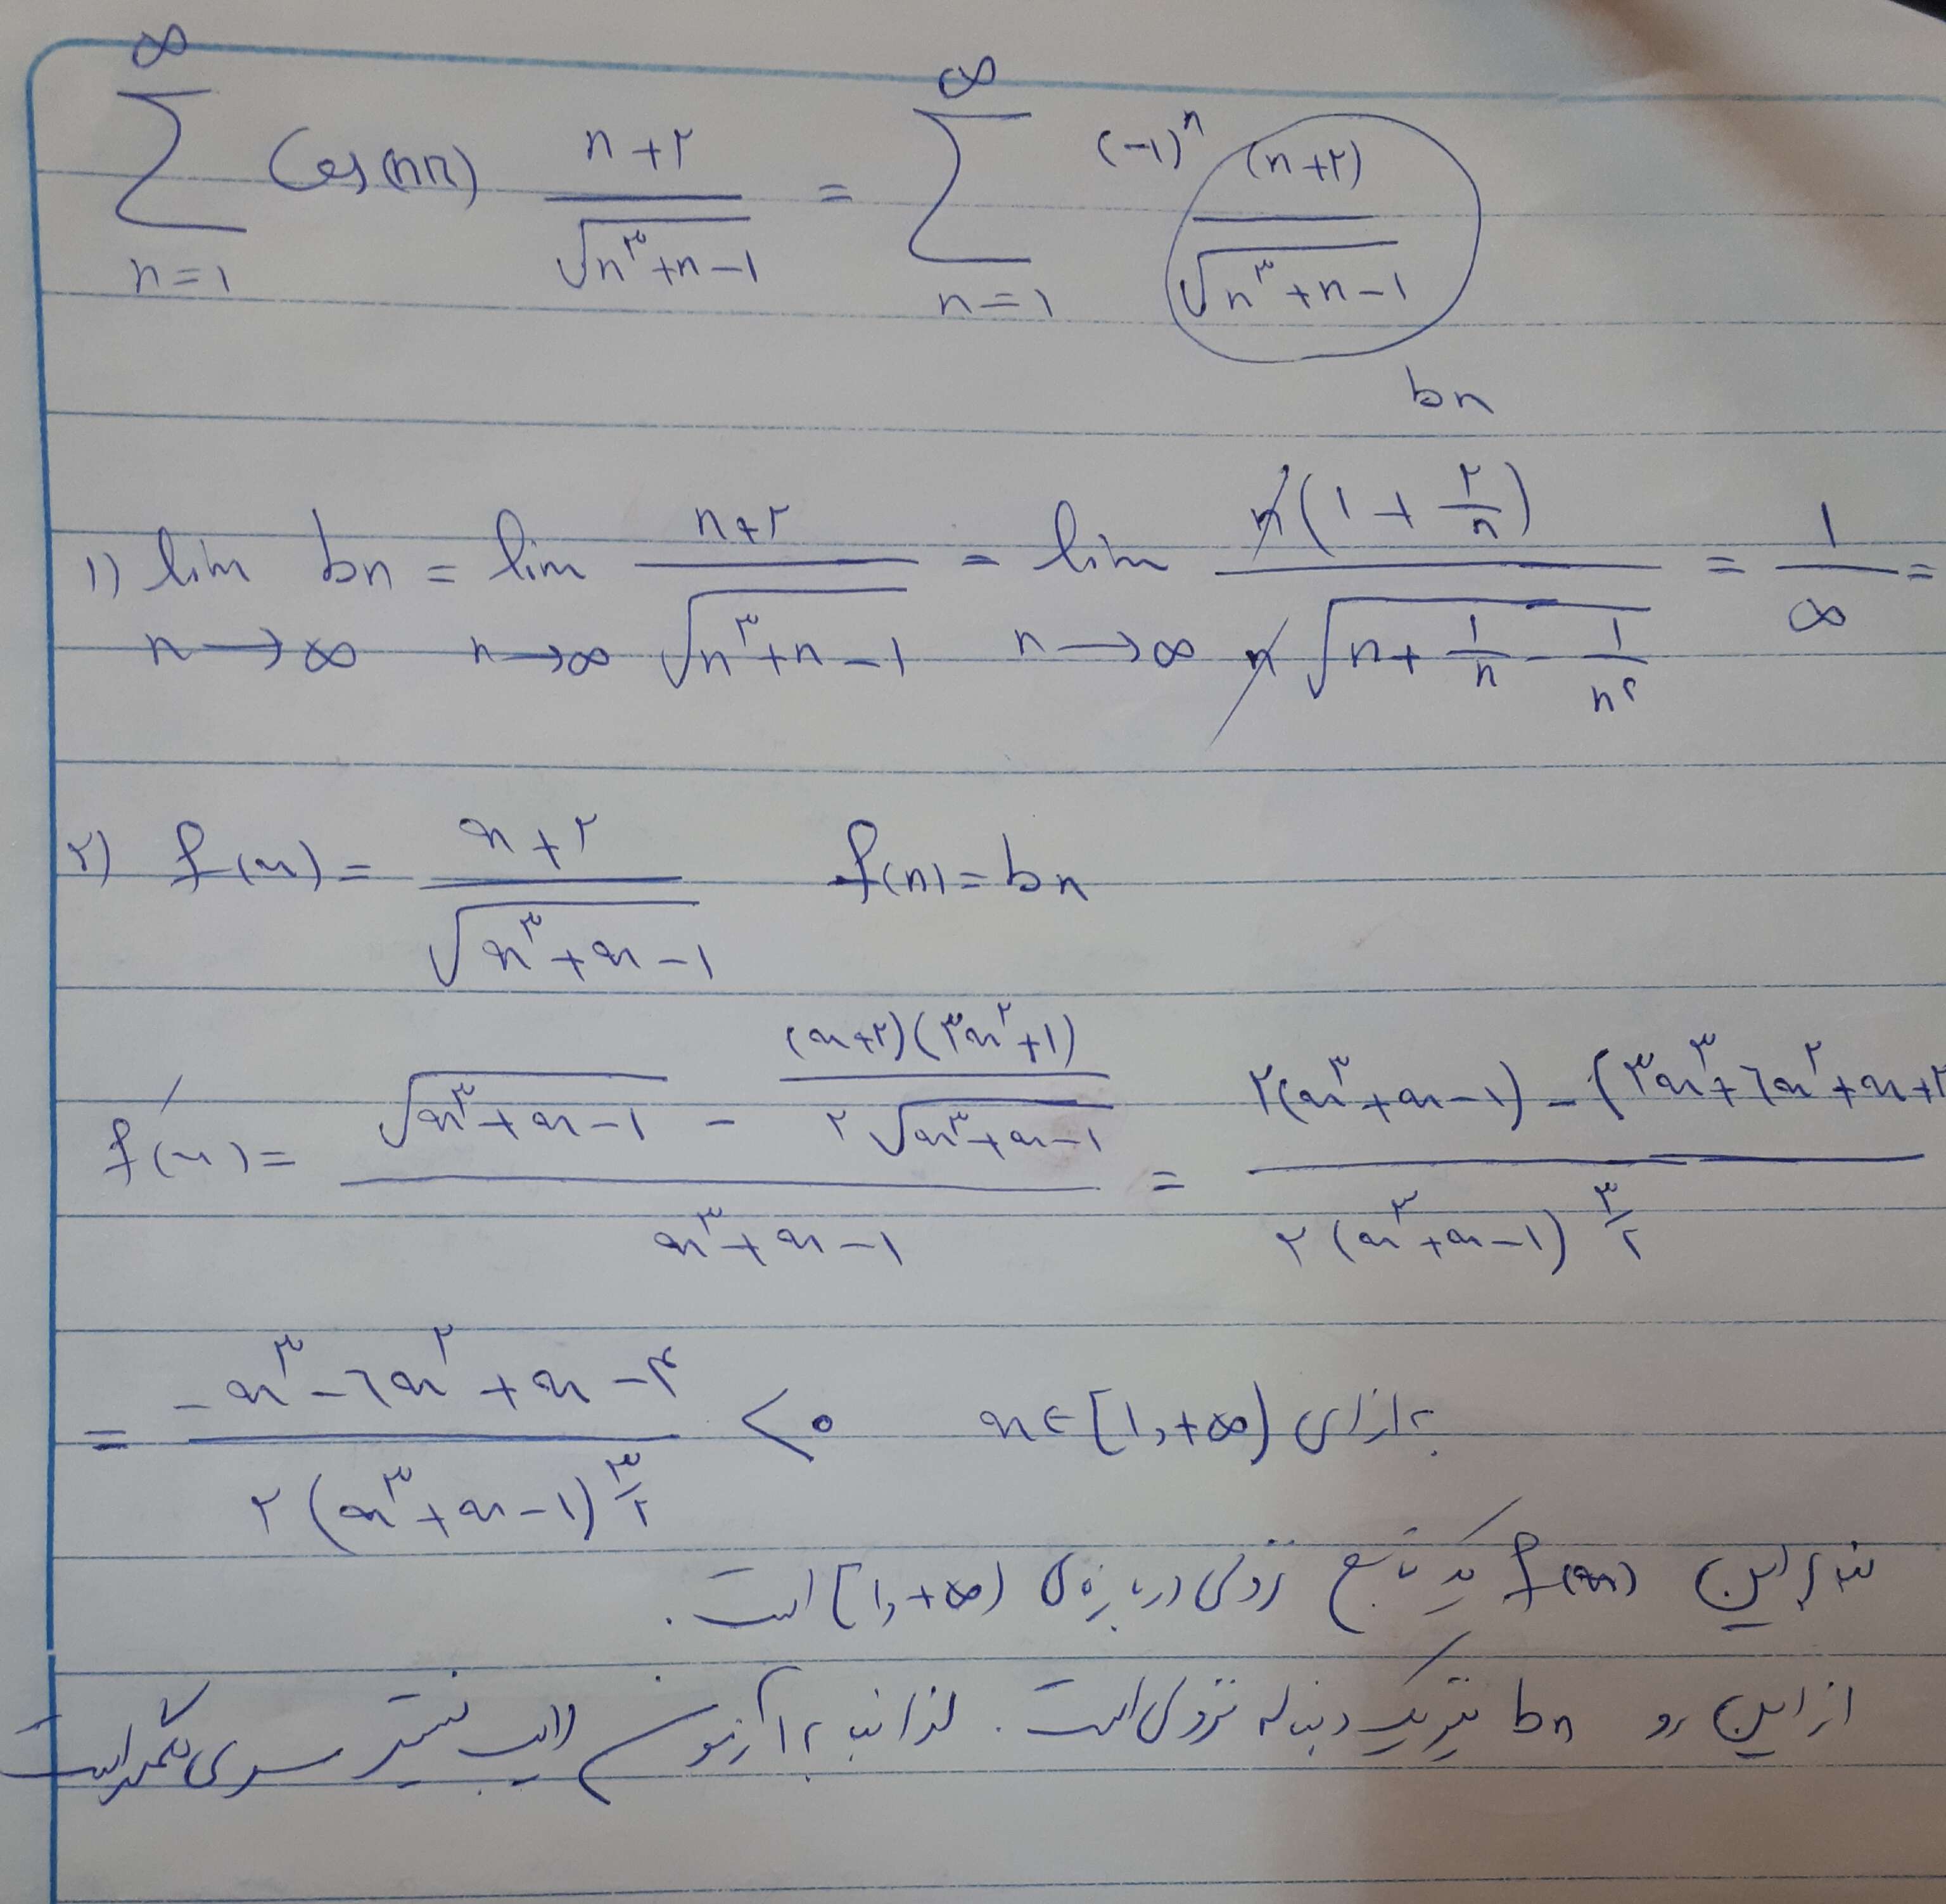 ∞ ∑ n=1 Cos(nπ) (n+۲)/√(n^۳+n-1) = ∞ ∑ n=1 (-1)^n (n+۲)/√(n^۳+n-1)
bn
1) lim n→∞ bn = lim n→∞ (n+۲)/√(n^۳+n-1) = lim n→∞ n(1+۲/n)/(n√(n+1/n-1/n^۲)) = 1/∞ =
۲) f(x) = (x+۲)/√(x^۳+x-1) f(n)=bn
f′(x) = (√(x^۳+x-1) - (x+۲)(۳x^۲+1)/(۲√(x^۳+x-1)))/(x^۳+x-1) = (۲(x^۳+x-1)-(۳x^۳+۶x^۲+x+۲)/(۲(x^۳+x-1)^(۳/۲))
= (-x^۳-۶x^۲+x-۴)/(۲(x^۳+x-1)^(۳/۲)) < ۰ به ازای x∈[1,+∞)
بنابراین f(x) یک تابع نزولی در بازه‌ی [1,+∞) است.
از این رو bn نیز یک دنباله نزولی است. لذا بنا به آزمون لایب نیتز سری همگراست